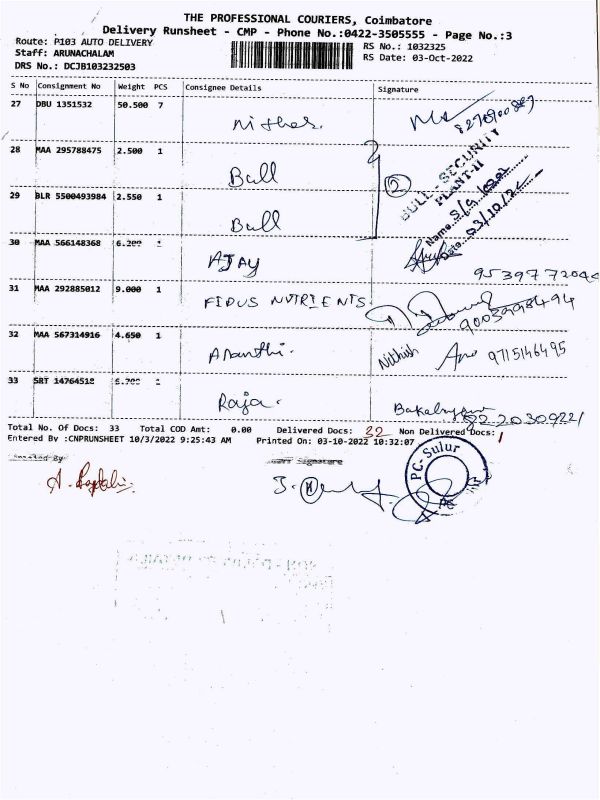 THE PROFESSIONAL COURIERS, Coimbatore
Delivery Runsheet - CMP - Phone No.:0422-3505555 - Page No.:3
Route: P103 AUTO DELIVERY
RS No.: 1032325
Staff: ARUNACHALAM
RS Date: 03-Oct-2022
DRS No.: DCJB103232503
S No Consignment No Weight PCS Consignee Details Signature
27 DBU 1351532 50.500 7
28 MAA 295788475 2.500 1 Bull
2
BULL - SECURITY
PLANT-II
29 BLR 5500493984 2.550 1 Bull
Name
Date 03/10/22
30 MAA 566148368 6.200 1 AJAY
31 MAA 292885012 9.000 1 FIDUS NUTRIENTS.
32 MAA 567314916 4.650 1 Ananthi. Nithish 9715146495
33 SRT 14764512 6.700 1 Raja.
Total No. Of Docs: 33 Total COD Amt: 0.00 Delivered Docs: 32 Non Delivered Docs: 1
Entered By :CNPRUNSHEET 10/3/2022 9:25:43 AM Printed On: 03-10-2022 10:32:07
PC-Sulur